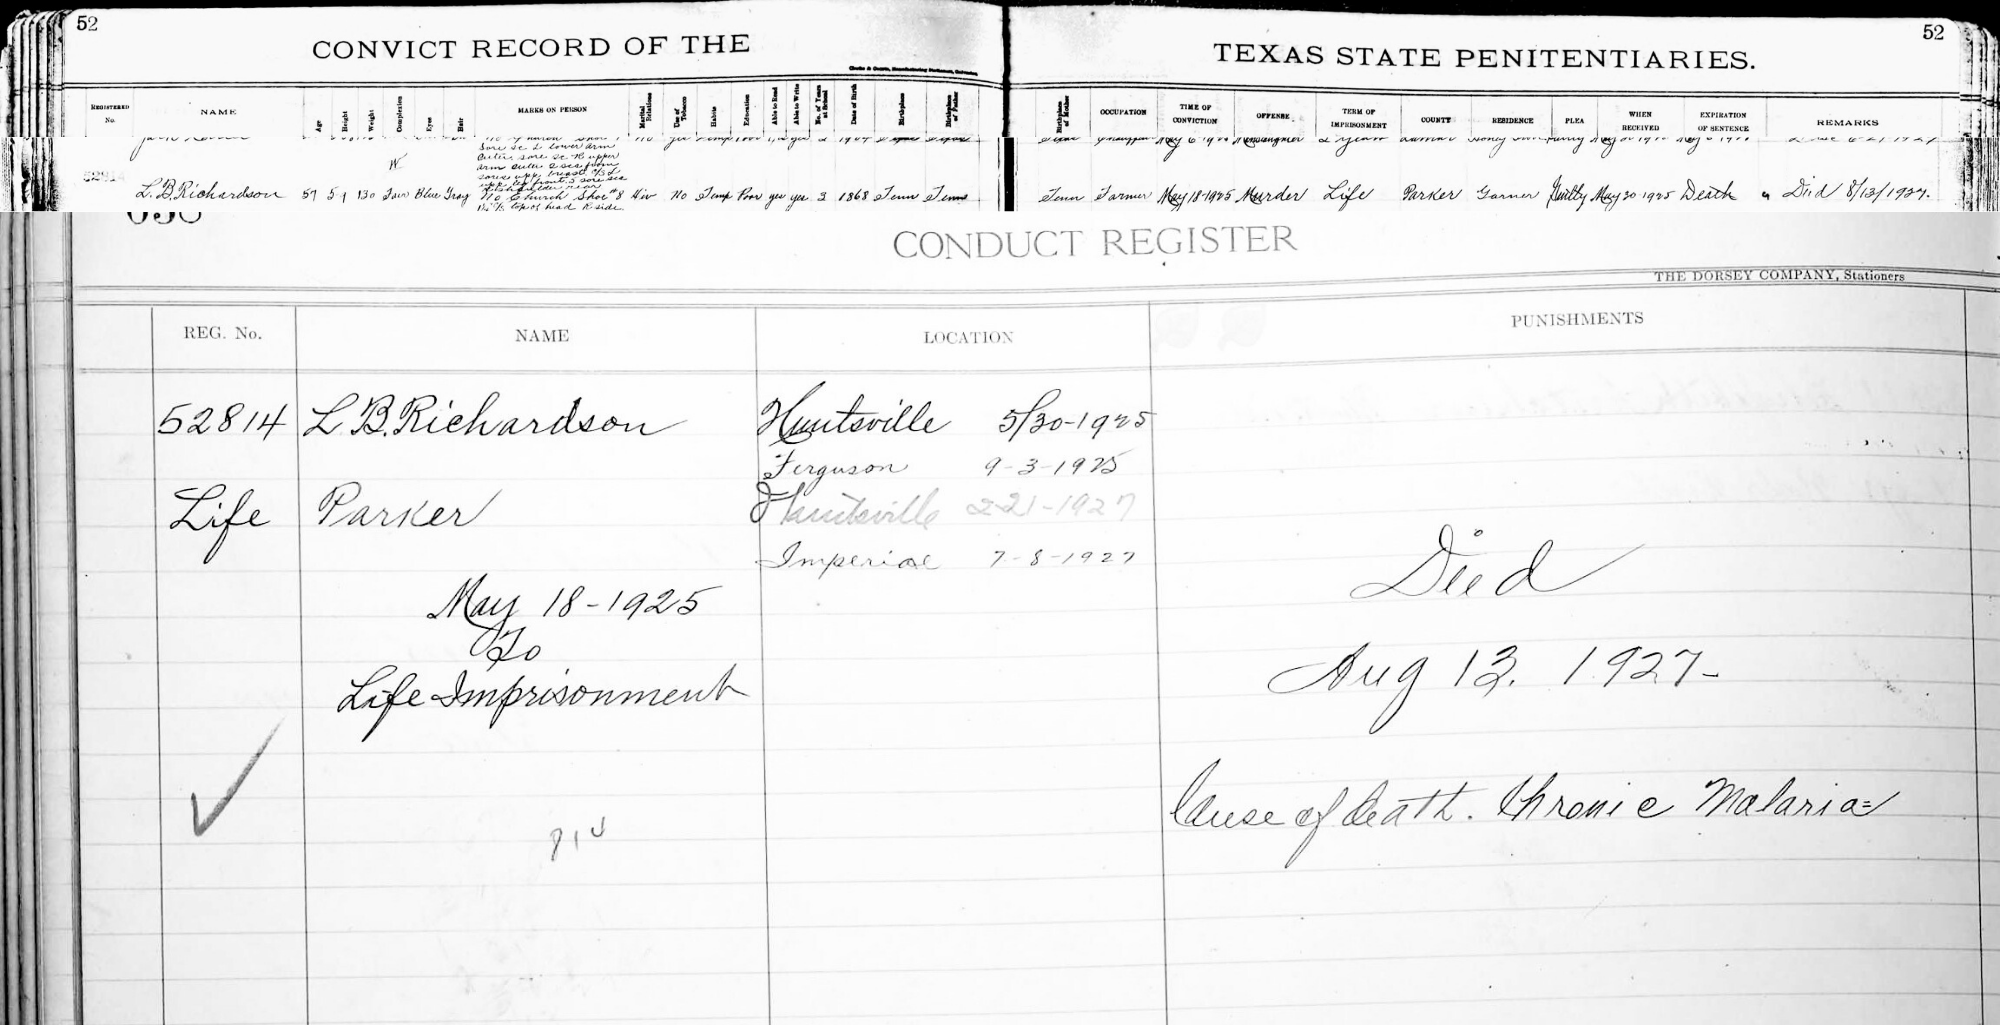 52 52
CONVICT RECORD OF THE TEXAS STATE PENITENTIARIES.
REGISTERED No. NAME Age Height Weight Complexion Eyes Hair MARKS ON PERSON Marital Relations Use of Tobacco Habits Education Able to Read Able to Write No. of Years at School Date of Birth Birthplace Birthplace of Father Birthplace of Mother OCCUPATION TIME OF CONVICTION OFFENSE TERM OF IMPRISONMENT COUNTY RESIDENCE PLEA WHEN RECEIVED EXPIRATION OF SENTENCE REMARKS
sore sc L lower arm
W outer sore sc R upper
arm outer 2 scs from
52814
L.B. Richardson 57 5-9 130 Fair Blue Gray No Church Shoe #8 Wiv No Temp Poor yes yes 3 1868 Tenn Tenn Tenn Farmer May 18-1925 Murder Life Parker Garner Guilty May 30 1925 Death Died 8/13/1927.
top of head R side
CONDUCT REGISTER
THE DORSEY COMPANY, Stationers
REG. No. NAME LOCATION PUNISHMENTS
52814 L.B. Richardson Huntsville 5/30-1925
Ferguson 9-3-1925
Life Parker Huntsville 2-21-1927
Imperial 7-8-1927
Died
May 18-1925
To
Aug 13. 1927-
Life Imprisonment
Cause of death. Chronic Malaria